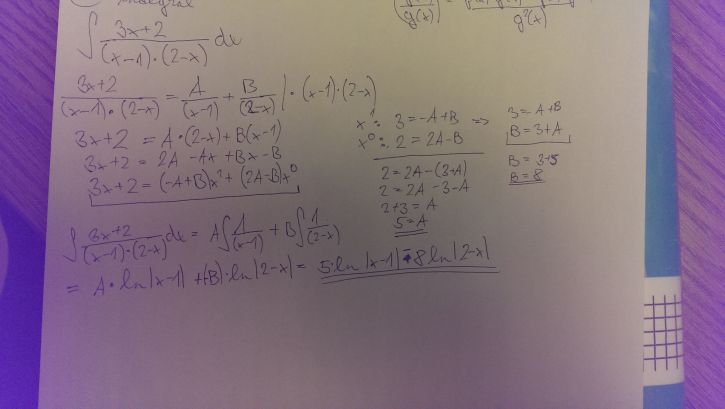 ∫ (3x+2)/((x-1)·(2-x)) dx
g(x)
g²(x)
(3x+2)/((x-1)·(2-x)) = A/(x-1) + B/(2-x) / · (x-1)·(2-x)
3x+2 = A·(2-x)+B(x-1)
3x+2 = 2A -Ax +Bx -B
3x+2 = (-A+B)x¹+ (2A-B)x⁰
x¹: 3=-A+B =>
x⁰: 2=2A-B
2=2A-(3+A)
2=2A-3-A
2+3=A
5=A
3=-A+B
B=3+A
B=3+5
B=8
∫ (3x+2)/((x-1)·(2-x)) dx = A∫ 1/(x-1) + B∫ 1/(2-x)
= A·ln|x-1| +(-B)·ln|2-x| = 5·ln|x-1| -8 ln|2-x|